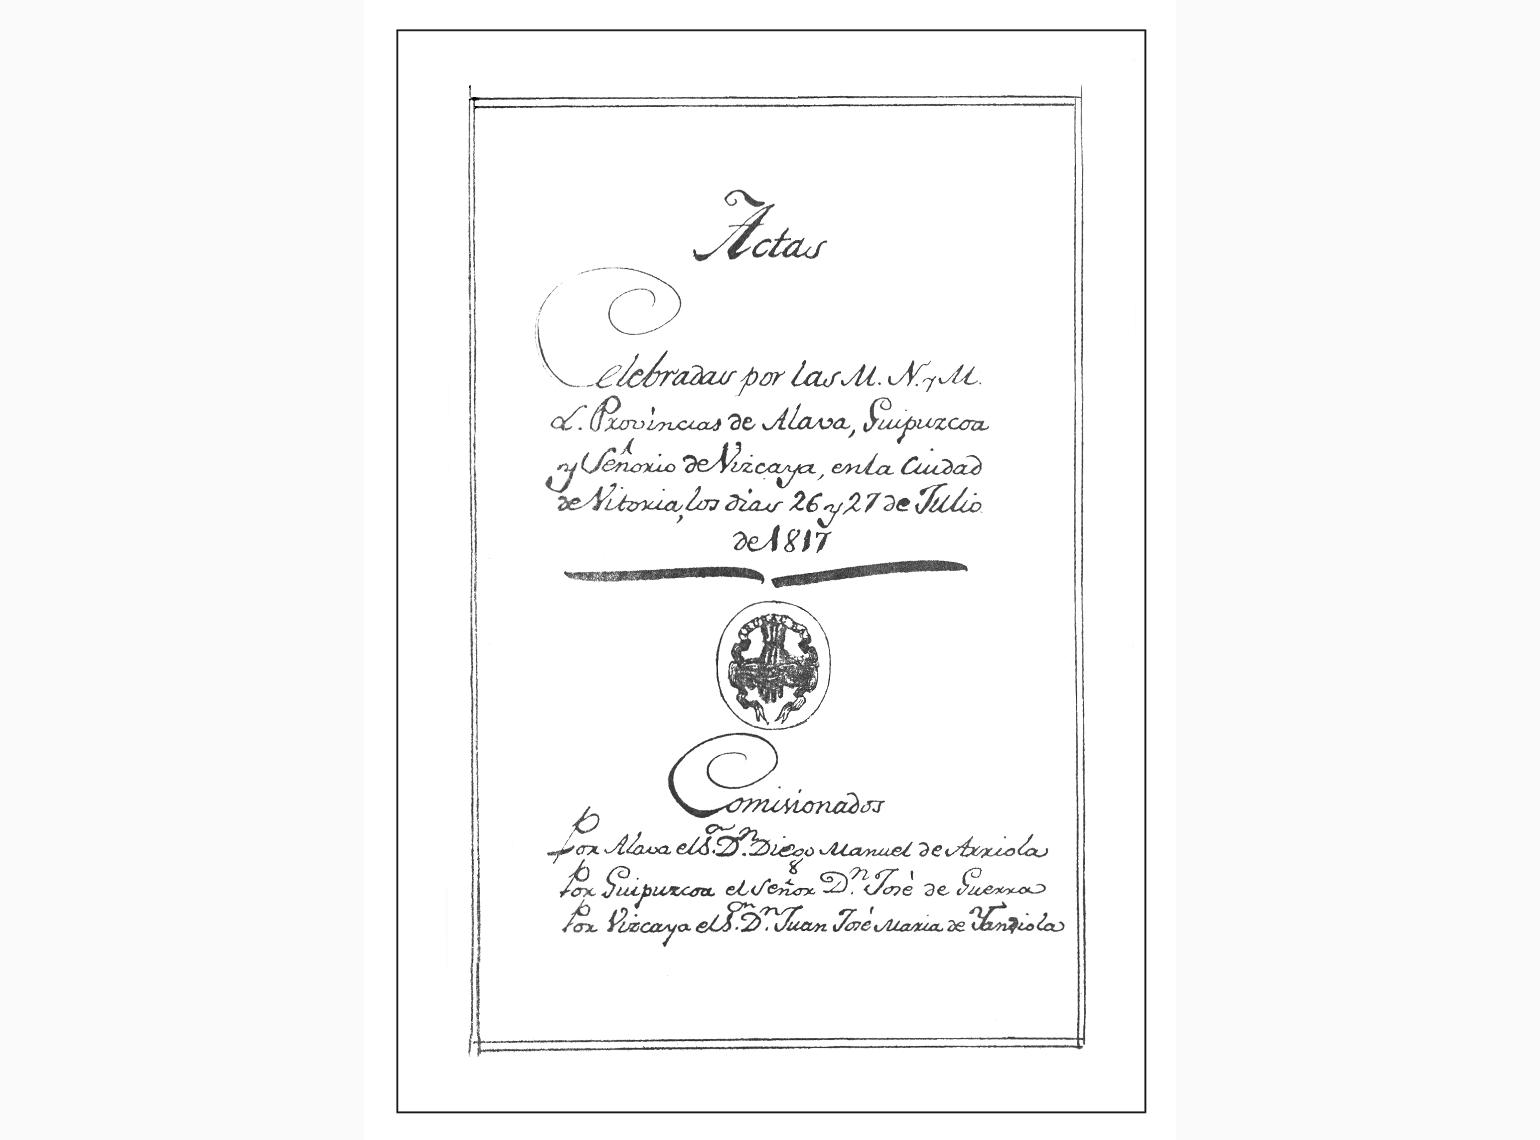 Actas
Celebradas por las M. N. y M.
L. Provincias de Alava, Guipuzcoa
y Señorio de Vizcaya, en la Ciudad
de Vitoria, los dias 26 y 27 de Julio
de 1817
IRURAC BAT
Comisionados
Por Alava el S.ᵒʳ D.ⁿ Diego Manuel de Arriola
Por Guipuzcoa el Señor D.ⁿ José de Guerra
Por Vizcaya el S.ᵒʳ D.ⁿ Juan José Maria de Yandiola